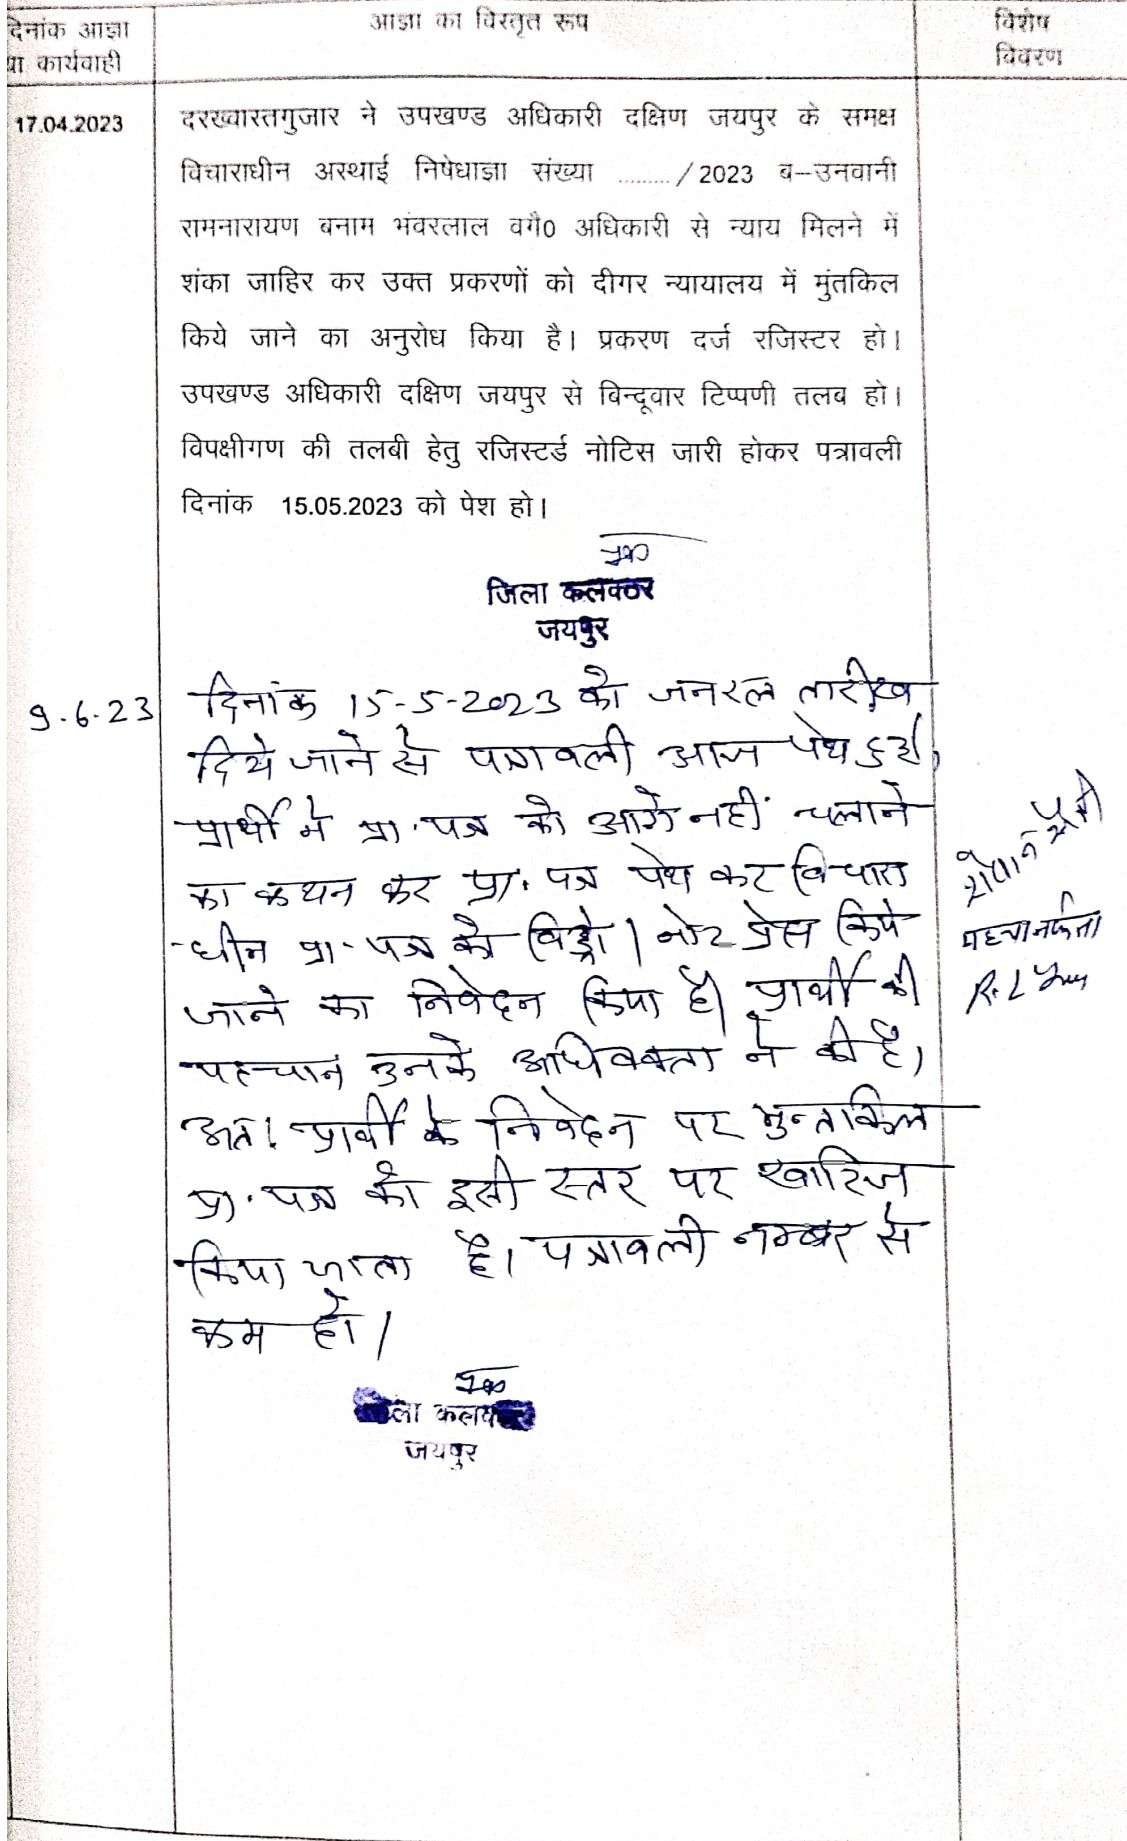 दिनांक आज्ञा
या कार्यवाही
आज्ञा का विस्तृत रूप
विशेष
विवरण
17.04.2023
दरख्वास्तगुजार ने उपखण्ड अधिकारी दक्षिण जयपुर के समक्ष
विचाराधीन अस्थाई निषेधाज्ञा संख्या ......... / 2023 ब–उनवानी
रामनारायण बनाम भंवरलाल वगै0 अधिकारी से न्याय मिलने में
शंका जाहिर कर उक्त प्रकरणों को दीगर न्यायालय में मुंतकिल
किये जाने का अनुरोध किया है। प्रकरण दर्ज रजिस्टर हो।
उपखण्ड अधिकारी दक्षिण जयपुर से बिन्दूवार टिप्पणी तलब हो।
विपक्षीगण की तलबी हेतु रजिस्टर्ड नोटिस जारी होकर पत्रावली
दिनांक 15.05.2023 को पेश हो।
जिला कलक्टर
जयपुर
9.6.23
दिनांक 15-5-2023 को जनरल तारीख
दिये जाने से पत्रावली आज पेश हुई।
प्रार्थी ने प्रा. पत्र को आगे नहीं चलाने
का कथन कर प्रा. पत्र पेश कर विचारा
-धीन प्रा. पत्र को विड्रो / नोट प्रेस किये
जाने का निवेदन किया है। प्रार्थी की
पहचान उनके अधिवक्ता ने की है।
अतः प्रार्थी के निवेदन पर मुन्तकिल
प्रा. पत्र को इसी स्तर पर खारिज
किया जाता है। पत्रावली नम्बर से
कम हो।
पहचानकर्ता
जिला कलक्टर
जयपुर